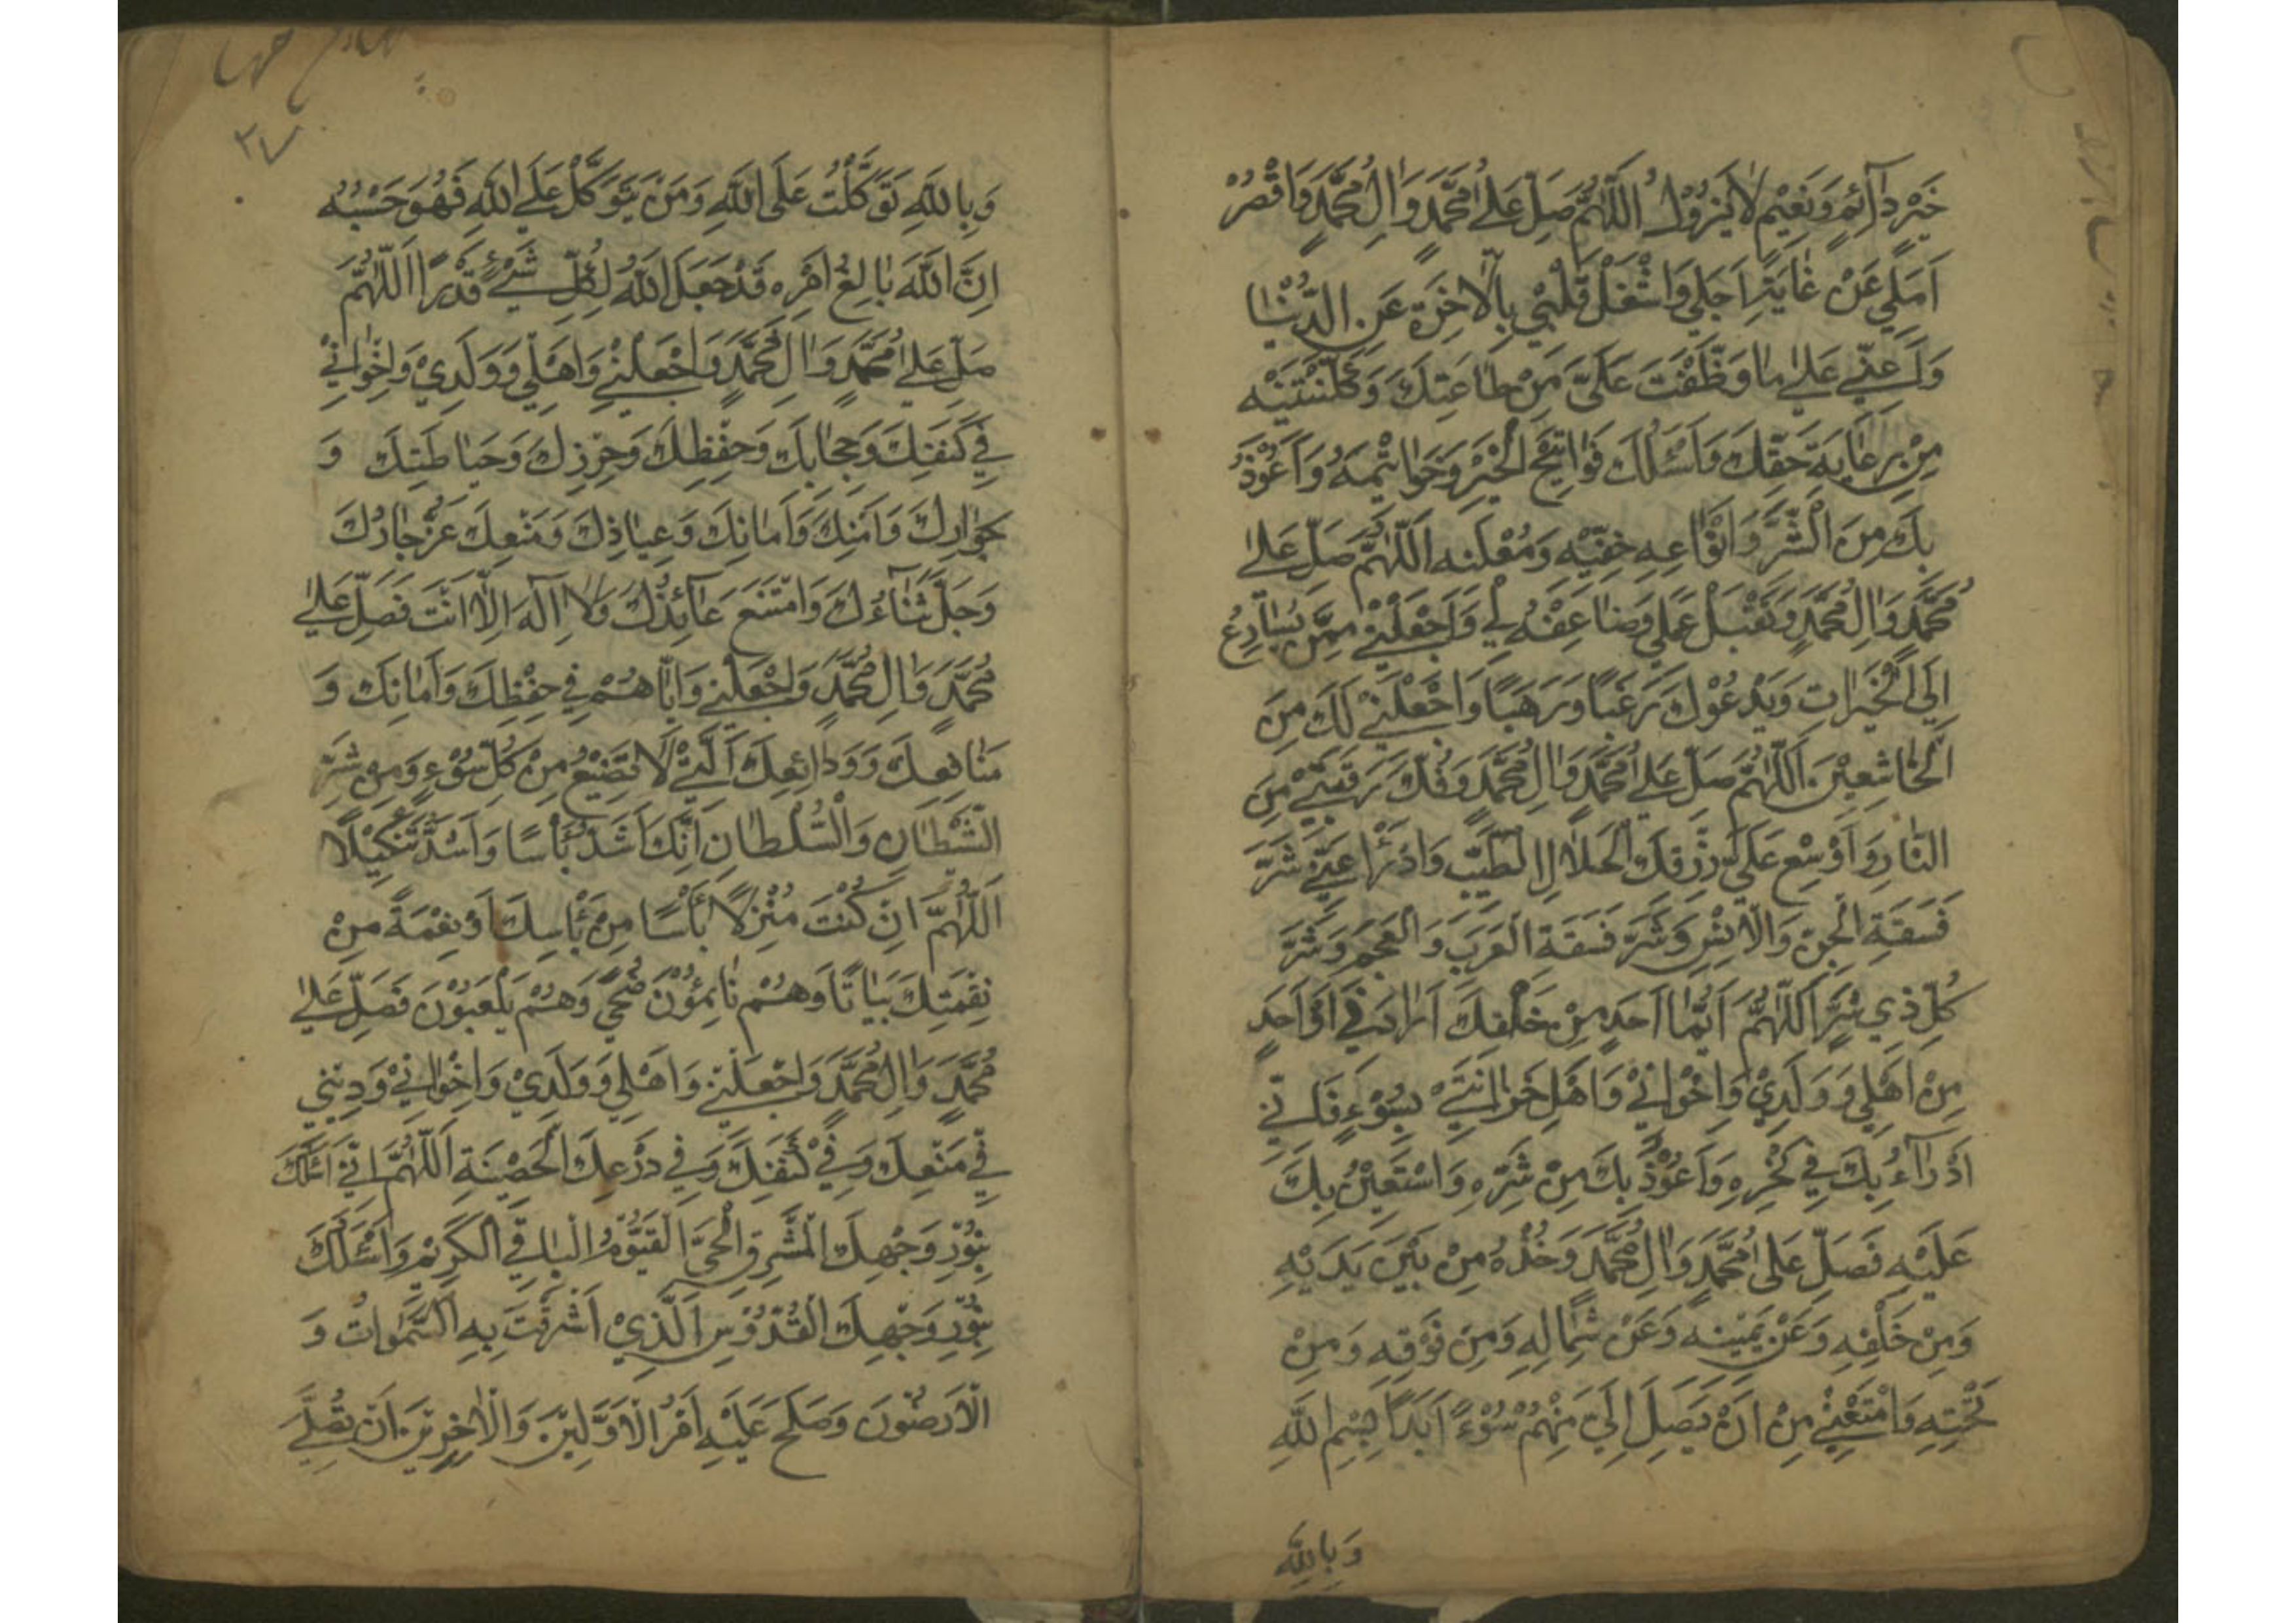 خَيْرٍ دَآئِمٍ وَنَعِيْمٍ لَا يَزُوْلُ اَللّٰهُمَّ صَلِّ عَلٰى مُحَمَّدٍ وَاٰلِ مُحَمَّدٍ وَاقْصُرْ
اَمَلِي عَنْ غَايَةِ اَجَلِي وَاشْغَلْ قَلْبِيْ بِالْاٰخِرَةِ عَنِ الدُّنْيَا
وَاَعِنِّي عَلٰى مَا وَظَّفْتَ عَلَىَّ مِنْ طَاعَتِكَ وَكَلَّفْتَنِيْهِ
مِنْ رِعَايَةِ حَقِّكَ وَاَسْئَلُكَ فَوَاتِحَ الْخَيْرِ وَخَوَاتِيْمَهُ وَاَعُوْذُ
بِكَ مِنَ الشَّرِّ وَاَنْوَاعِهِ خَفِيِّهِ وَمُعْلَنِهِ اَللّٰهُمَّ صَلِّ عَلٰى
مُحَمَّدٍ وَاٰلِ مُحَمَّدٍ وَتَقَبَّلْ عَمَلِي وَضَاعِفْهُ لِي وَاجْعَلْنِيْ مِمَّنْ يُسَارِعُ
اِلَى الْخَيْرَاتِ وَيَدْعُوْكَ رَغَبًا وَرَهَبًا وَاجْعَلْنِيْ لَكَ مِنَ
الْخَاشِعِيْنَ اَللّٰهُمَّ صَلِّ عَلٰى مُحَمَّدٍ وَاٰلِ مُحَمَّدٍ وَفُكَّ رَقَبَتِيْ مِنَ
النَّارِ وَاَوْسِعْ عَلَىَّ رِزْقِكَ الْحَلَالِ الطَّيِّبِ وَادْرَأْ عَنِّي شَرَّ
فَسَقَةِ الْجِنِّ وَالْاِنْسِ وَشَرَّ فَسَقَةِ الْعَرَبِ وَالْعَجَمِ وَشَرَّ
كُلِّ ذِي شَرٍّ اَللّٰهُمَّ اَيُّمَا اَحَدٍ مِنْ خَلْقِكَ اَرَادَنِي اَوْ اَحَدٍ
مِنْ اَهْلِي وَوَلَدِيْ وَاِخْوَانِيْ وَاَهْلِ حُزَانَتِيْ بِسُوْءٍ فَاِنِّي
اَدْرَاُ بِكَ فِي نَحْرِهِ وَاَعُوْذُ بِكَ مِنْ شَرِّهِ وَاَسْتَعِيْنُ بِكَ
عَلَيْهِ فَصَلِّ عَلٰى مُحَمَّدٍ وَاٰلِ مُحَمَّدٍ وَخُذْهُ مِنْ بَيْنِ يَدَيْهِ
وَمِنْ خَلْفِهِ وَعَنْ يَمِيْنِهِ وَعَنْ شِمَالِهِ وَمِنْ فَوْقِهِ وَمِنْ
تَحْتِهِ وَامْنَعْنِيْ مِنْ اَنْ يَصِلَ اِلَيَّ مِنْهُمْ سُوْءٌ اَبَدًا بِسْمِ اللّٰهِ
وَبِاللّٰهِ
٢٧
وَبِاللّٰهِ تَوَكَّلْتُ عَلَى اللّٰهِ وَمَنْ يَتَوَكَّلْ عَلَى اللّٰهِ فَهُوَ حَسْبُهُ
اِنَّ اللّٰهَ بَالِغُ اَمْرِهِ قَدْ جَعَلَ اللّٰهُ لِكُلِّ شَيْءٍ قَدْرًا اَللّٰهُمَّ
صَلِّ عَلٰى مُحَمَّدٍ وَاٰلِ مُحَمَّدٍ وَاجْعَلْنِيْ وَاَهْلِي وَوَلَدِيْ وَاِخْوَانِيْ
فِي كَنَفِكَ وَحِجَابِكَ وَحِفْظِكَ وَحِرْزِكَ وَحَيَاطَتِكَ وَ
جِوَارِكَ وَاَمْنِكَ وَاَمَانِكَ وَعِيَاذِكَ وَمَنْعِكَ عَزَّ جَارُكَ
وَجَلَّ ثَنَآءُكَ وَامْتَنَعَ عَآئِذُكَ وَلَا اِلٰهَ اِلَّا اَنْتَ فَصَلِّ عَلٰى
مُحَمَّدٍ وَاٰلِ مُحَمَّدٍ وَاجْعَلْنِيْ وَاِيَّاهُمْ فِي حِفْظِكَ وَاَمَانِكَ وَ
مَنَافِعِكَ وَوَدَائِعِكَ الَّتِيْ لَا تَضِيْعُ مِنْ كُلِّ سُوْءٍ وَمِنْ شَرِّ
الشَّيْطَانِ وَالسُّلْطَانِ اِنَّكَ اَشَدُّ بَأْسًا وَاَشَدُّ تَنْكِيْلًا
اَللّٰهُمَّ اِنْ كُنْتَ مُنْزِلًا بَأْسًا مِنْ بَأْسِكَ اَوْ نِقْمَةً مِنْ
نِقْمَتِكَ بَيَاتًا وَهُمْ نَائِمُوْنَ اَوْ ضُحًى وَهُمْ يَلْعَبُوْنَ فَصَلِّ عَلٰى
مُحَمَّدٍ وَاٰلِ مُحَمَّدٍ وَاجْعَلْنِيْ وَاَهْلِي وَوَلَدِيْ وَاِخْوَانِيْ وَدِيْنِي
فِي مَنْعِكَ وَفِيْ كَنَفِكَ وَفِي دِرْعِكَ الْحَصِيْنَةِ اَللّٰهُمَّ اِنِّيْ اَسْئَلُكَ
بِنُوْرِ وَجْهِكَ الْمُشْرِقِ الْحَىِّ الْقَيُّوْمِ الْبَاقِي الْكَرِيْمِ وَاَسْئَلُكَ
بِنُوْرِ وَجْهِكَ الْقُدُّوْسِ الَّذِيْ اَشْرَقَتْ بِهِ السَّمٰوَاتُ وَ
الْاَرَضُوْنَ وَصَلَحَ عَلَيْهِ اَمْرُ الْاَوَّلِيْنَ وَالْاٰخِرِيْنَ اَنْ تُصَلِّيَ